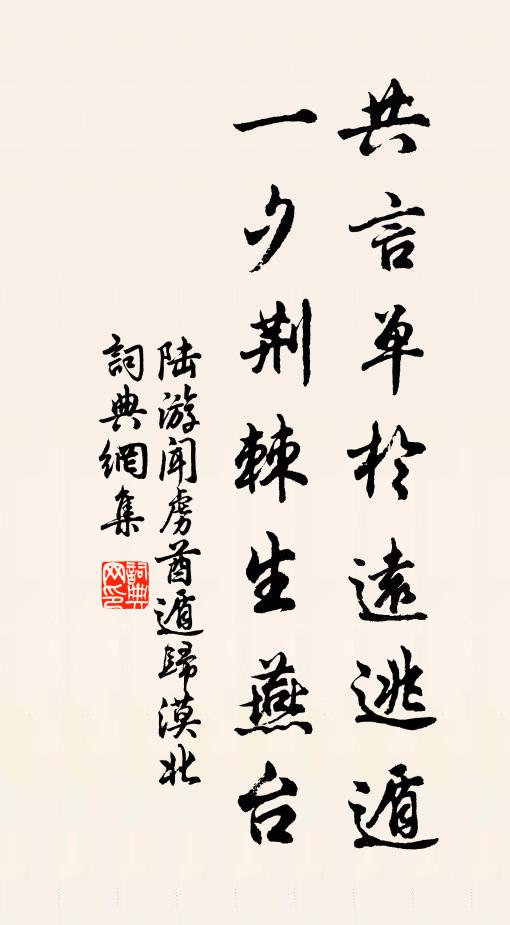 共言单於遠逃遁
一夕荆棘生燕台
陆游闻虏酋遁歸漠北
詞典網集
詞典
网印